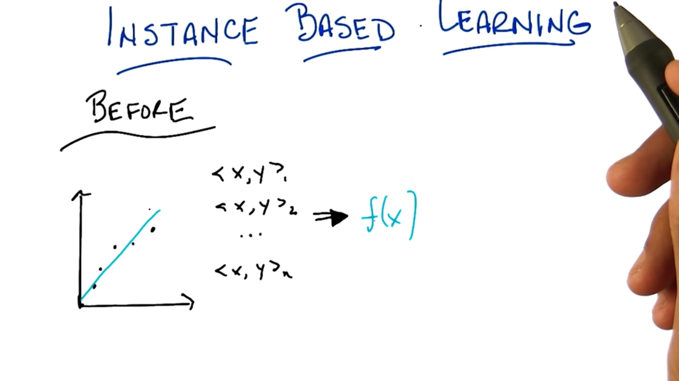 INSTANCE BASED LEARNING
BEFORE
<x, y>₁
<x, y>₂
...
<x, y>ₙ
⇒ f(x)